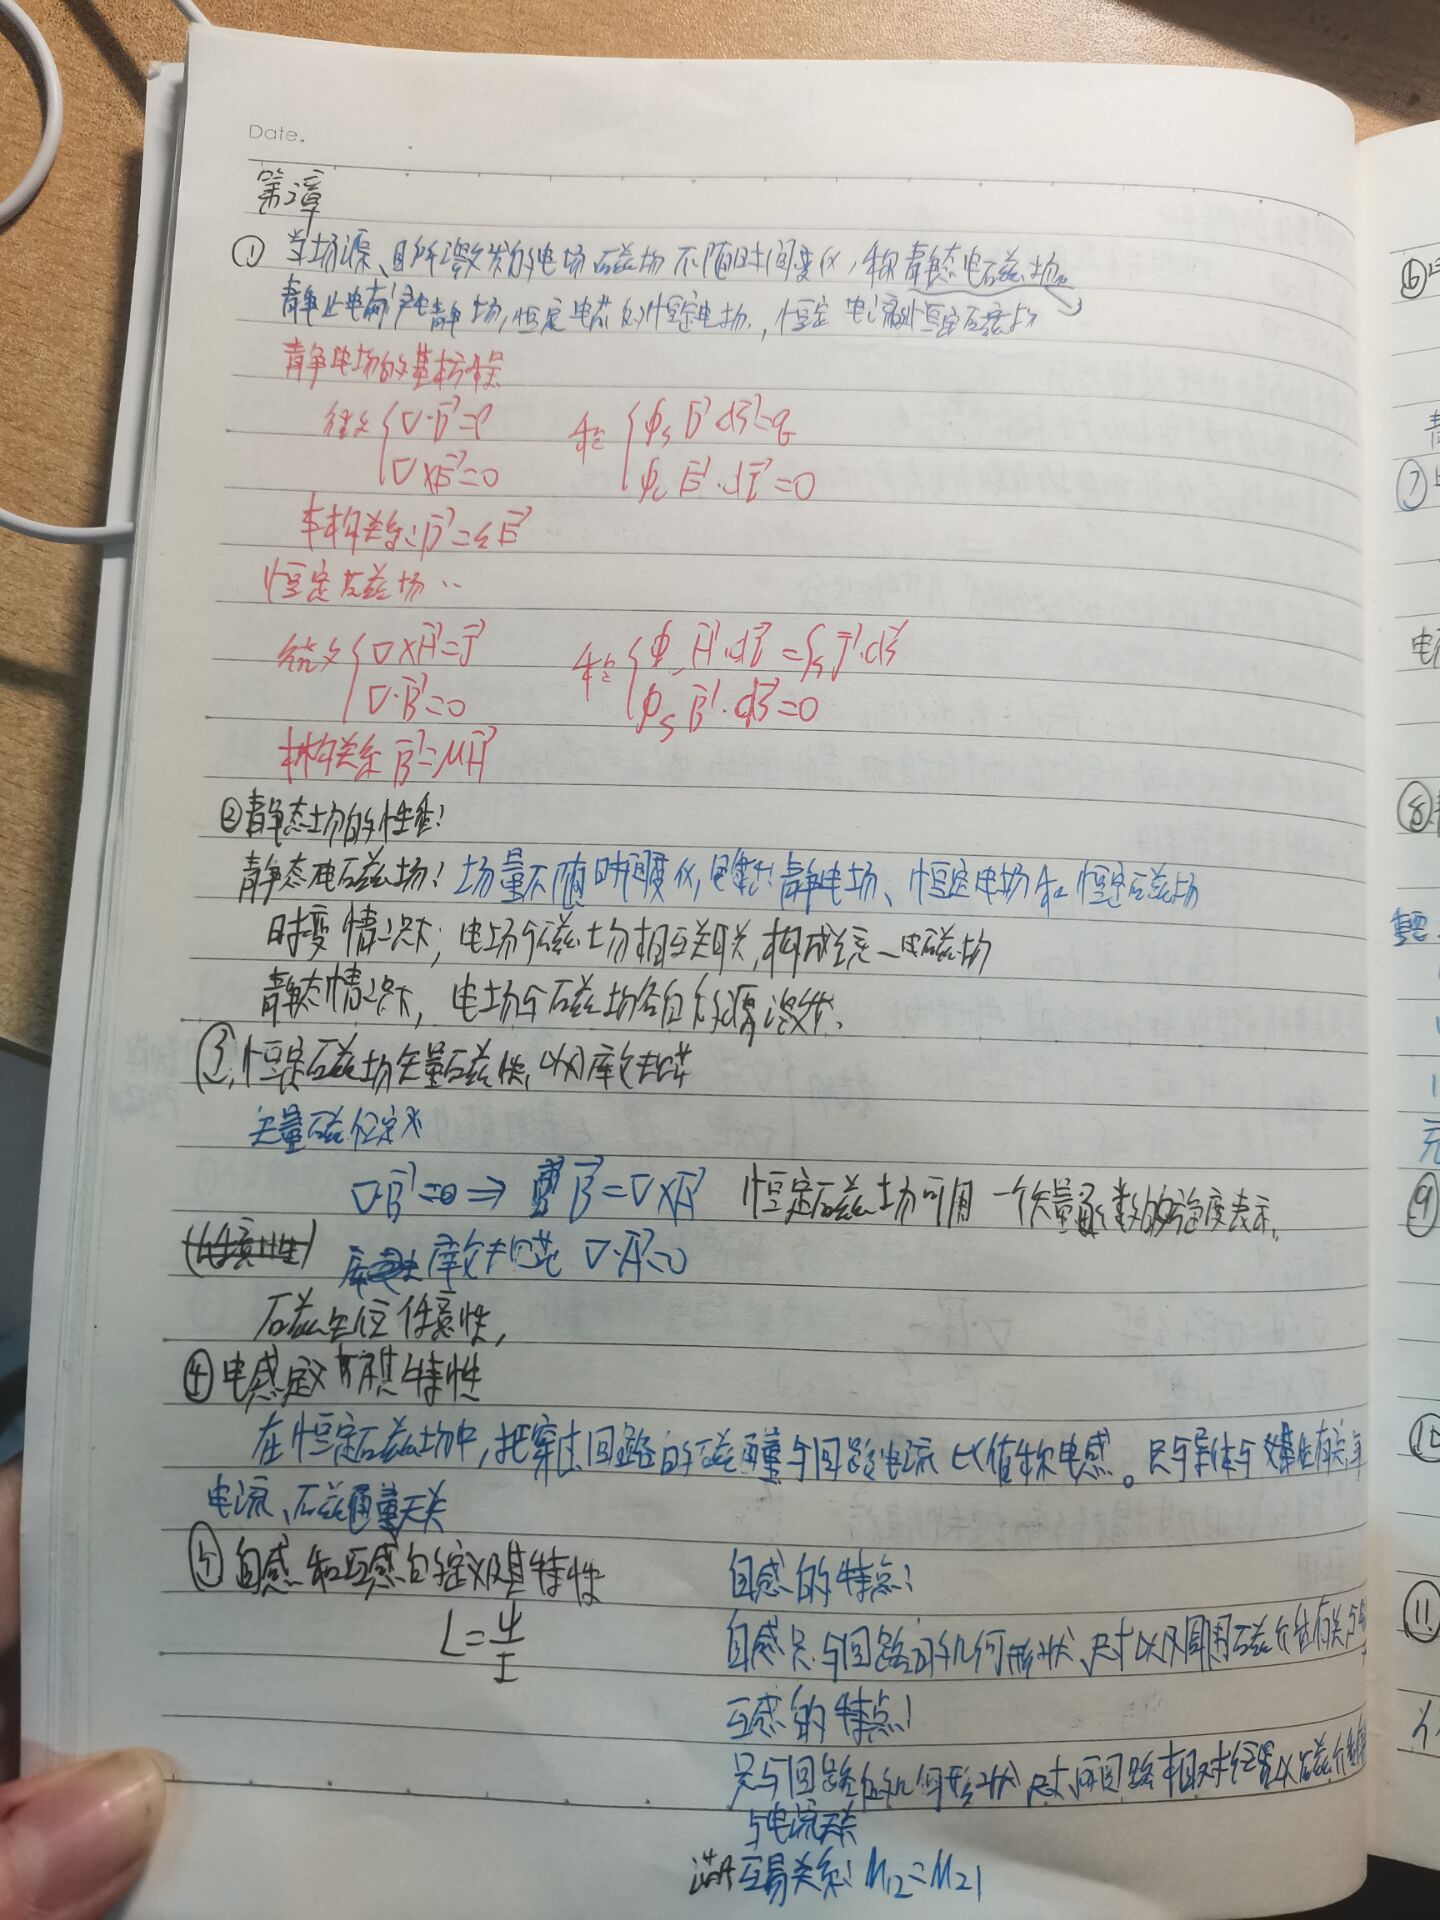 Date.
第3章
① 当场源、且所激发的电场磁场不随时间变化,称静态电磁场。
静止电荷产生静电场,恒定电流的恒定电场,恒定电流的恒定磁场
静电场的基本方程
微分 ∇·D=ρ 积分 ∮s D·dS=q
∇×E=0 ∮c E·dl=0
本构关系:D=εE
恒定磁场··
微分 ∇×H=J 积分 ∮c H·dl=∫s J·dS
∇·B=0 ∮s B·dS=0
本构关系 B=μH
②静态场的性质:
静态电磁场:场量不随时间变化,包括:静电场、恒定电场和恒定磁场
时变情况下,电场与磁场相互关联,构成统一电磁场
静态情况下,电场与磁场各自的源激发.
③.恒定磁场矢量磁位,以及库仑规范
矢量磁位定义
∇·B=0 ⇒ B=∇×A 恒定磁场可用一个矢量函数的旋度表示.
库仑规范 ∇·A=0
磁矢位任意性,
④电感定义及其特性
在恒定磁场中,把穿过回路的磁通量与回路电流比值称电感。只与导体与 有关,与
电流、磁通量无关
⑤自感和互感的定义及其特性 自感的特点:
L=Ψ/I
自感只与回路的几何形状、尺寸以及周围磁介质有关与
互感的特点:
只与回路的几何形状尺寸,两回路相对位置以磁介质
与电流无关
满足互易关系:M12=M21
⑥
⑦
电
⑧
⑨
⑩
⑪